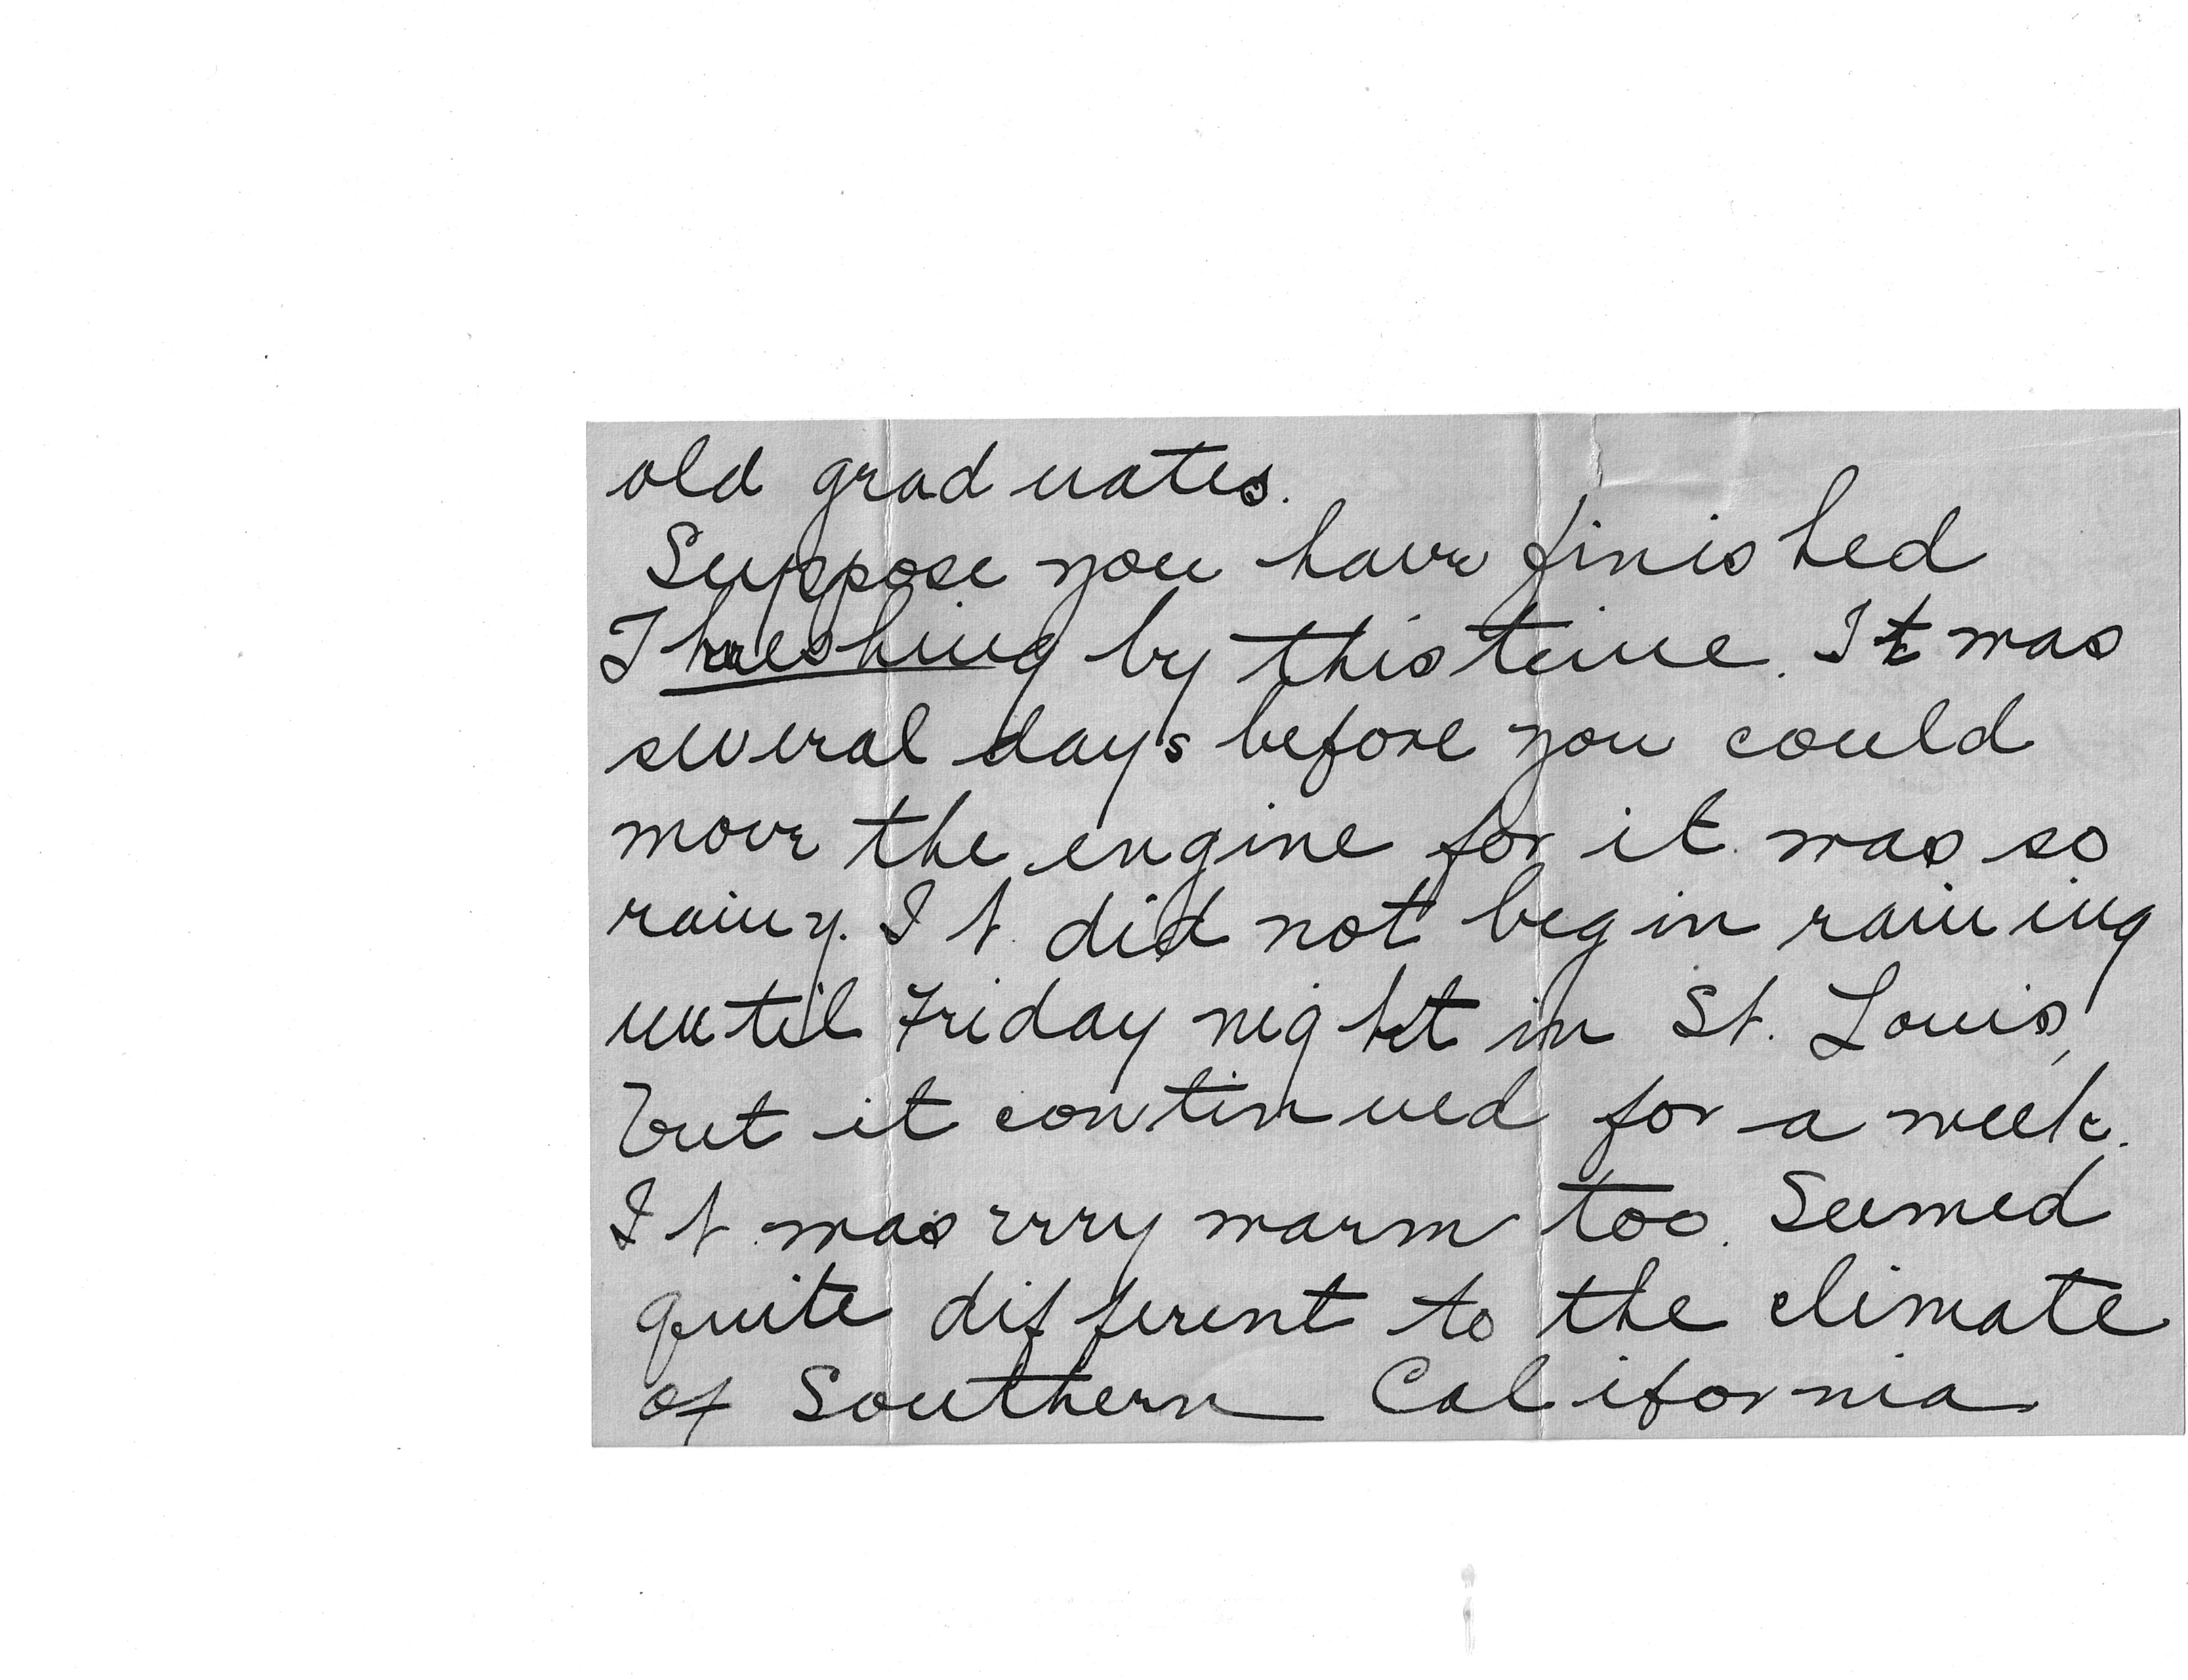 old graduates.
Suppose you have finished
Threshing by this time. It was
several days before you could
move the engine for it was so
rainy. It did not begin raining
until Friday night in St. Louis,
but it continued for a week.
It was very warm too. Seemed
quite different to the climate
of Southern California